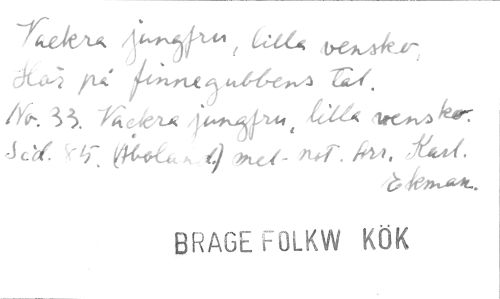 Vackra jungfru, lilla vensko,
Hör på finnegubbens tal.
No. 33. Vackra jungfru, lilla vensko.
Sid. 85. (Åboland.) mel- not. forr. Karl.
Ekman.
BRAGE FOLKW KÖK